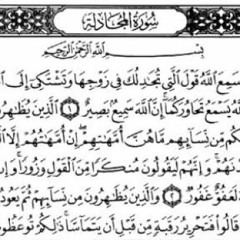 سورة المجادلة
بسم الله الرحمن الرحيم
سمع الله قول التي تجادلك في زوجها وتشتكي إلى الله
يسمع تحاوركما إن الله سميع بصير ١ الذين يظاهرون
منكم من نسائهم ما هن أمهاتهم إن أمهاتهم إلا
ولدنهم وإنهم ليقولون منكرا من القول وزورا وإن
لعفو غفور ٢ والذين يظاهرون من نسائهم ثم يعودون
قالوا فتحرير رقبة من قبل أن يتماسا ذلكم توعظون